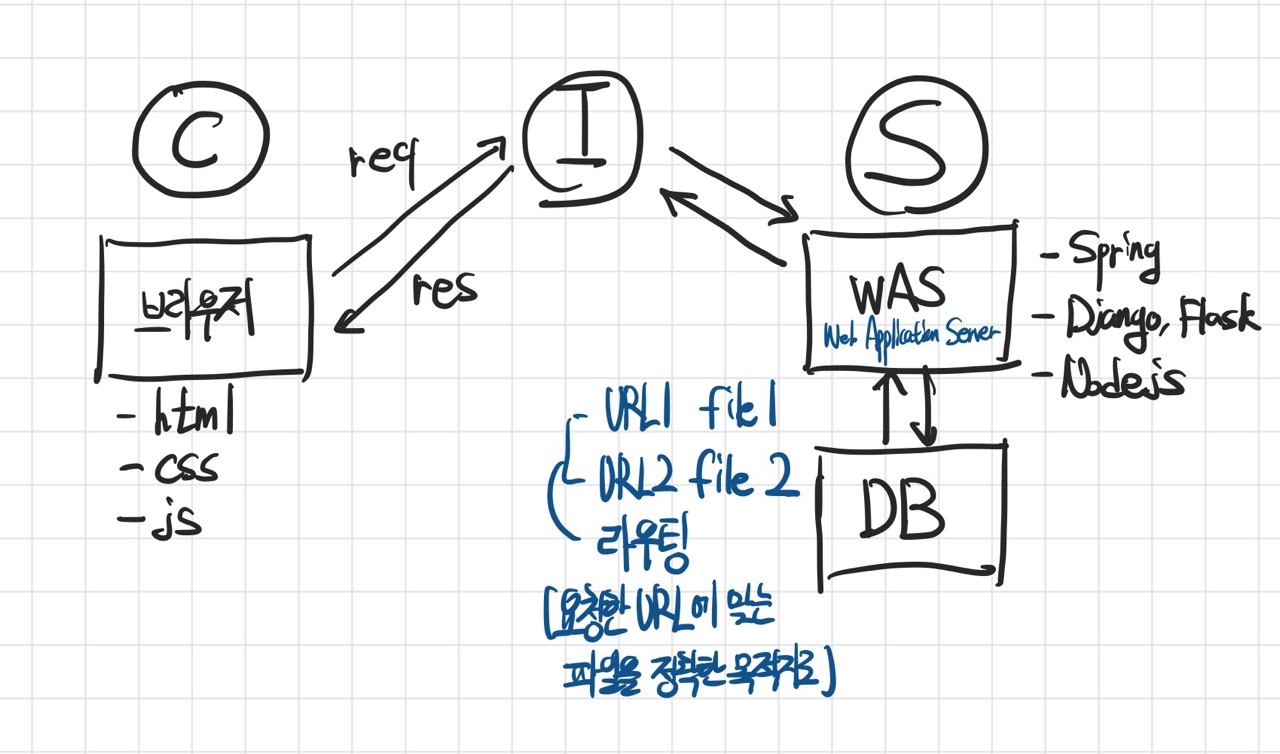 C
I
S
req
res
브라우저
- html
- css
- js
WAS
Web Application Server
- Spring
- Django, Flask
- Node.js
DB
- URL1 file1
- URL2 file2
라우팅
[요청한 URL에 있는
파일을 정확한 목적지로]